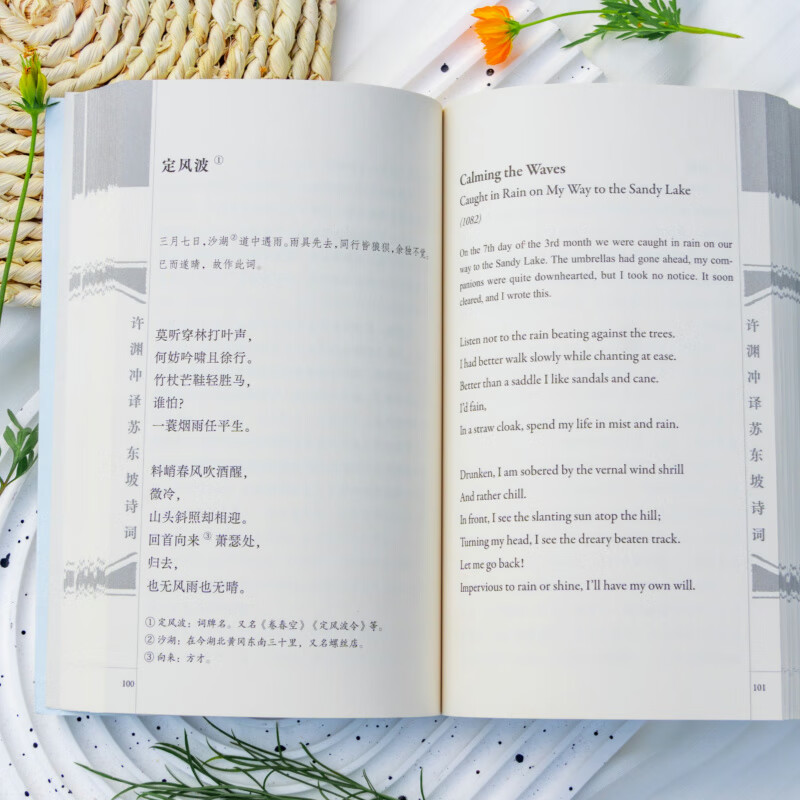 定风波①
三月七日,沙湖②道中遇雨。雨具先去,同行皆狼狈,余独不觉。
已而遂晴,故作此词。
莫听穿林打叶声,
何妨吟啸且徐行。
竹杖芒鞋轻胜马,
谁怕?
一蓑烟雨任平生。
料峭春风吹酒醒,
微冷,
山头斜照却相迎。
回首向来③萧瑟处,
归去,
也无风雨也无晴。
①定风波:词牌名。又名《卷春空》《定风波令》等。
②沙湖:在今湖北黄冈东南三十里,又名螺丝店。
③向来:方才。
许渊冲译苏东坡诗词
100
Calming the Waves
Caught in Rain on My Way to the Sandy Lake
(1082)
On the 7th day of the 3rd month we were caught in rain on our
way to the Sandy Lake. The umbrellas had gone ahead, my com-
panions were quite downhearted, but I took no notice. It soon
cleared, and I wrote this.
Listen not to the rain beating against the trees.
I had better walk slowly while chanting at ease.
Better than a saddle I like sandals and cane.
I'd fain,
In a straw cloak, spend my life in mist and rain.
Drunken, I am sobered by the vernal wind shrill
And rather chill.
In front, I see the slanting sun atop the hill;
Turning my head, I see the dreary beaten track.
Let me go back!
Impervious to rain or shine, I'll have my own will.
许渊冲译苏东坡诗词
101